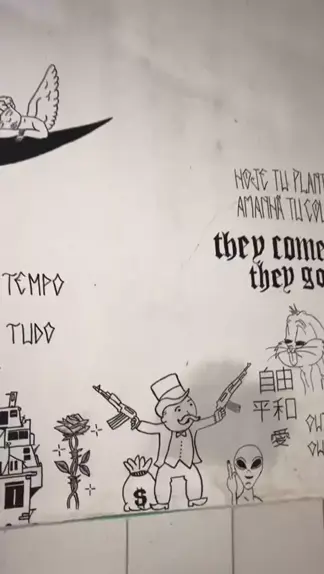 HOJE TU PLANT
AMANHÃ TU COL
they come
they go
TEMPO
TUDO
自由
平和
愛
$